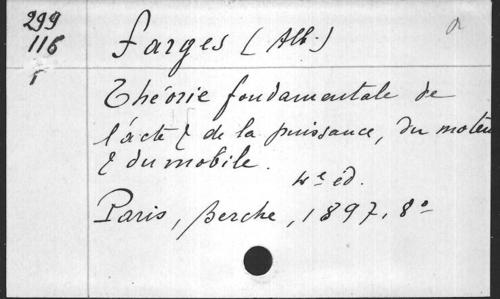 299
116
Farges (Alb.)
Théorie fondamentale de
l'acte & de la puissance, du moteu
& du mobile.
4e éd.
Paris, Berche, 1897, 8o